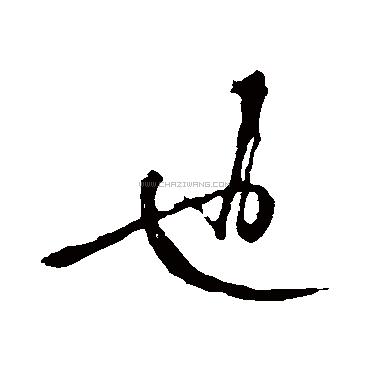 也
WWW.CHAZIWANG.COM